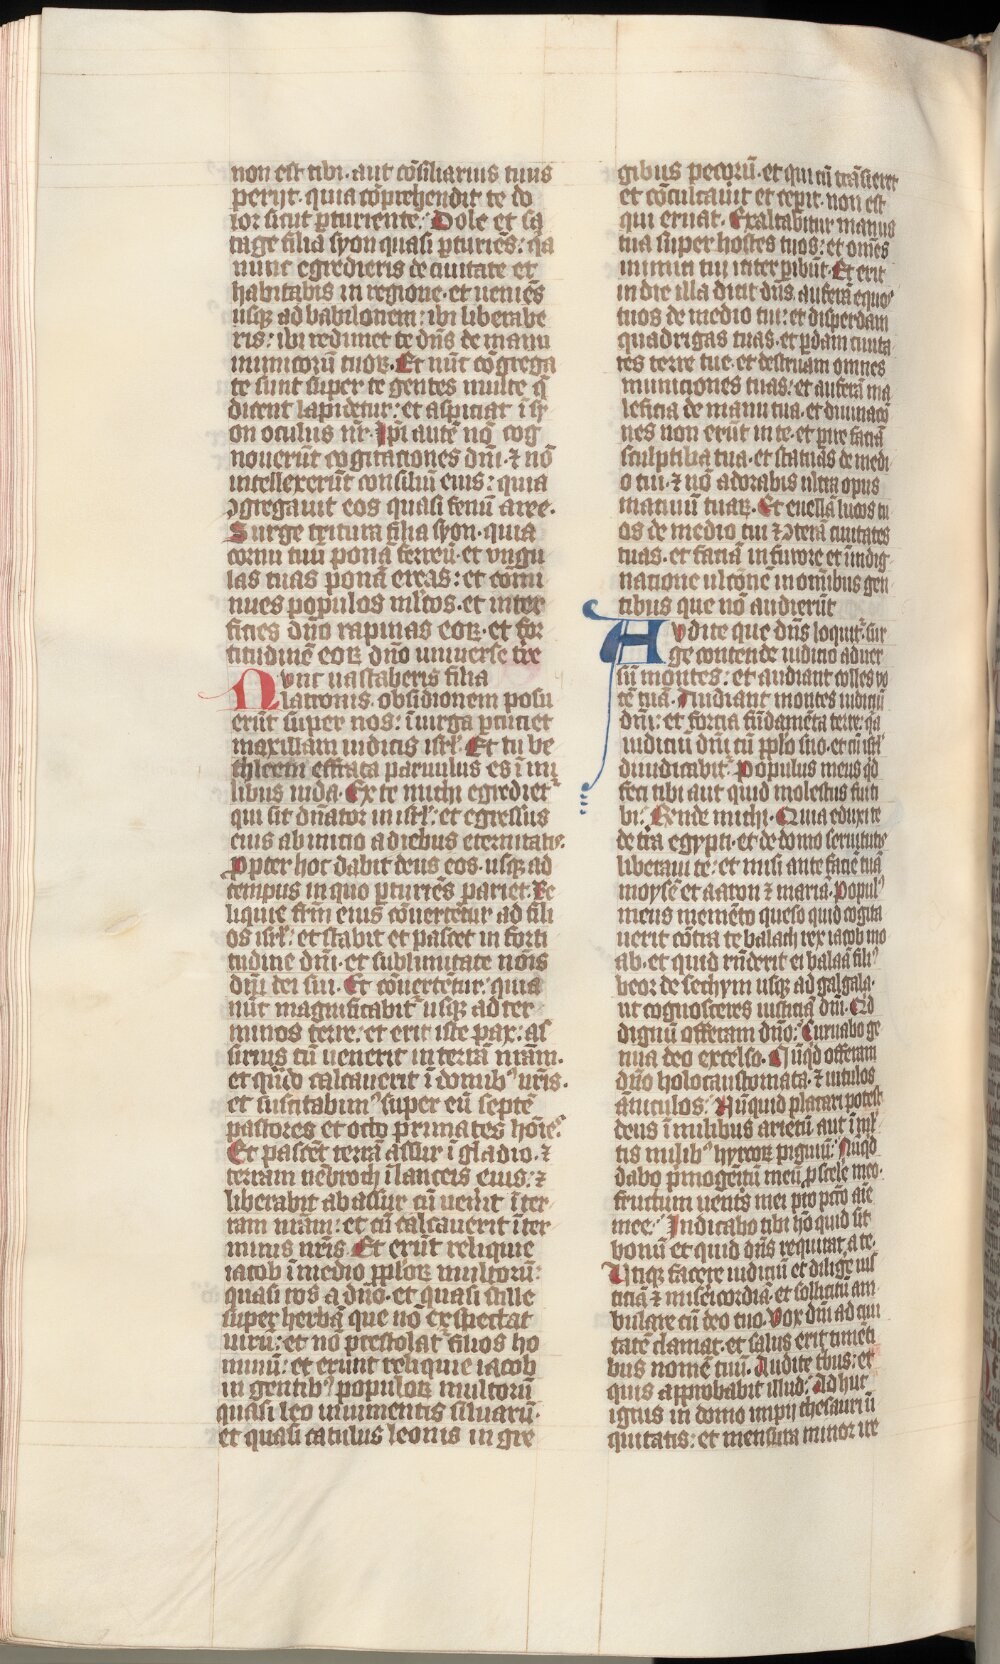 non est tibi. aut cōsiliarius tuus
perijt. quia cōprehendit te do
lor sicut ꝑturiente. Dole et sa
tage filia syon quasi ꝑturiēs: qͣ
nunc egredieris de ciuitate et
habitabis in regione. et ueniēs
usqꝫ ad babilonem: ibi liberabe
ris: ibi redimet te dn̄s de manu
inimicorū tuoꝝ. Et nūc cōgrega
te sunt super te gentes multe q̄
dicunt lapidetur: et aspiciat ī sy
on oculus nr̄. Ip̄i autē nō cog
nouerūt cogitaciones dn̄i. ⁊ nō
intellexerūt consiliū eius: quia
ꝯgregauit eos quasi fenū aree.
Surge tritura filia syon. quia
cornu tuū ponā ferreū. et vngu
las tuas ponā ereas: et cōmi
nues populos ml̄tos. et inter
ficies dn̄o rapinas eoꝝ. et for
titudinē eoꝝ dn̄o uniuerse tr̄e
Nvnc uastaberis filia
latronis. obsidionem posu
erūt super nos: ī uirga ꝑcuciet
maxillam iudicis isrl̄. Et tu be
thleem effrata paruulus es ī mi
libus iuda. Ex te michi egredietͬ
qui sit dn̄ator in isrl̄: et egressus
eius ab inicio a diebus eternitatis.
Propter hoc dabit deus eos. usqꝫ ad
tempus in quo ꝑturiēs pariet. Re
liquie frm̄ eius cōuertētur ad fili
os isrl̄: et stabit et pascet in forti
tudine dn̄i. et sublimitate nōis
dn̄i dei sui. Et cōuertētur: quia
nūc magnificabitͬ usqꝫ ad ter
minos terre: et erit iste pax: as
sirius cū uenerit in terrā nrām.
et qn̄do calcauerit ī domibꝰ nr̄is.
et suscitabimꝰ super eū septē
pastores et octo primates hōies.
Et pascēt terrā assur ī gladio. ⁊
terram nēbroth ī lanceis eius: ⁊
liberabit ab assur cū uen̄it ī ter
ram nrām: et cū calcauerit ī ter
minis nr̄is. Et erūt reliquie
iacob ī medio ppl̄oꝝ multorū:
quasi ros a dn̄o. et quasi stille
super herbā que nō exspectat
uirū: et nō prestolat filios ho
minū: et erunt reliquie iacob
in gentibꝰ populoꝝ multorū
quasi leo in iumentis siluarū.
et quasi catulus leonis in gre
gibus pecorū. et qui cū trāsierit
et cōculcauit et cepit. non est
qui eruat. Exaltabitur manus
tua super hostes tuos: et om̄es
inimici tui interibūt. Et erit
in die illa dicit dn̄s. auferā equos
tuos de medio tui: et disperdam
quadrigas tuas. et ꝑdam ciuita
tes terre tue. et destruam omnes
municiones tuas: et auferā ma
leficia de manu tua. et diuinacō
nes non erūt in te. et ꝑire faciā
sculptilia tua. et statuas de medi
o tui. ⁊ nō adorabis ultra opus
manuū tuaꝝ. Et euellā lucos tu
os de medio tui ⁊ ꝯterā ciuitates
tuas. et faciā in furore et ī indig
nacione ulcōnē in omībus gen
tibus que nō audierūt
Avdite que dn̄s loquitͬ. sur
ge contende iudicio aduer
sū montes: et audiant colles vo
cē tuā. Audiant montes iudiciū
dn̄i: et forcia fūdamēta terre: qͣ
iudiciū dn̄i cū ppl̄o suo. et cū isrl̄
diiudicabitͬ. Popolus meus qd̄
feci tibi aut quid molestus fui ti
bi: Rende michi. Quia eduxi te
de tr̄a egypti. et de domo seruitutis
liberaui te: et misi ante faciē tuā
moysē et aaron ⁊ mariā. Populꝰ
meus memēto queso quid cogita
uerit cōtra te balach rex iacob mo
ab. et quid rn̄derit ei balaā filiꝰ
beor de sechym usqꝫ ad galgala.
ut cognosceres iusticiā dn̄i. Qd
dignū offeram dn̄o: Curuabo ge
nua deo excelso. Nūqd offeram
dn̄o holocaustomata. ⁊ uitulos
āniculos: Nūquid placari potest
deus ī milibus arietū aut ī ml̄
tis milibꝰ hyrcoꝝ pigniū: Nūqd
dabo p̄mogenitū meū ꝓ scele meo.
fructum uentris mei pro pccō aīe
mee: Indicabo tibi hō quid sit
bonū et quid dn̄s requirat a te.
Vtiqꝫ facere iudiciū et diligē ius
ticiā ⁊ misericordiā. et sollicitū am
bulare cū deo tuo. Vox dn̄i ad ciui
tatē clamat. et salus erit timēti
bus nomē tuū. Audite tbus: et
quis approbabit illud: Adhuc
ignis in domo impij thesauri ī
quitatis: et mensura minor ire